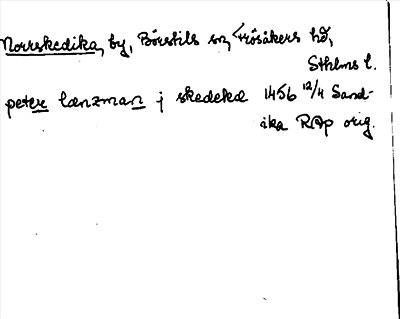 Norrskedika, by, Börstils sn, Frösåkers hd,
Sthlms l.
peter lænzman j skedekæ 1456 12/4 Sand-
ika RAp orig.